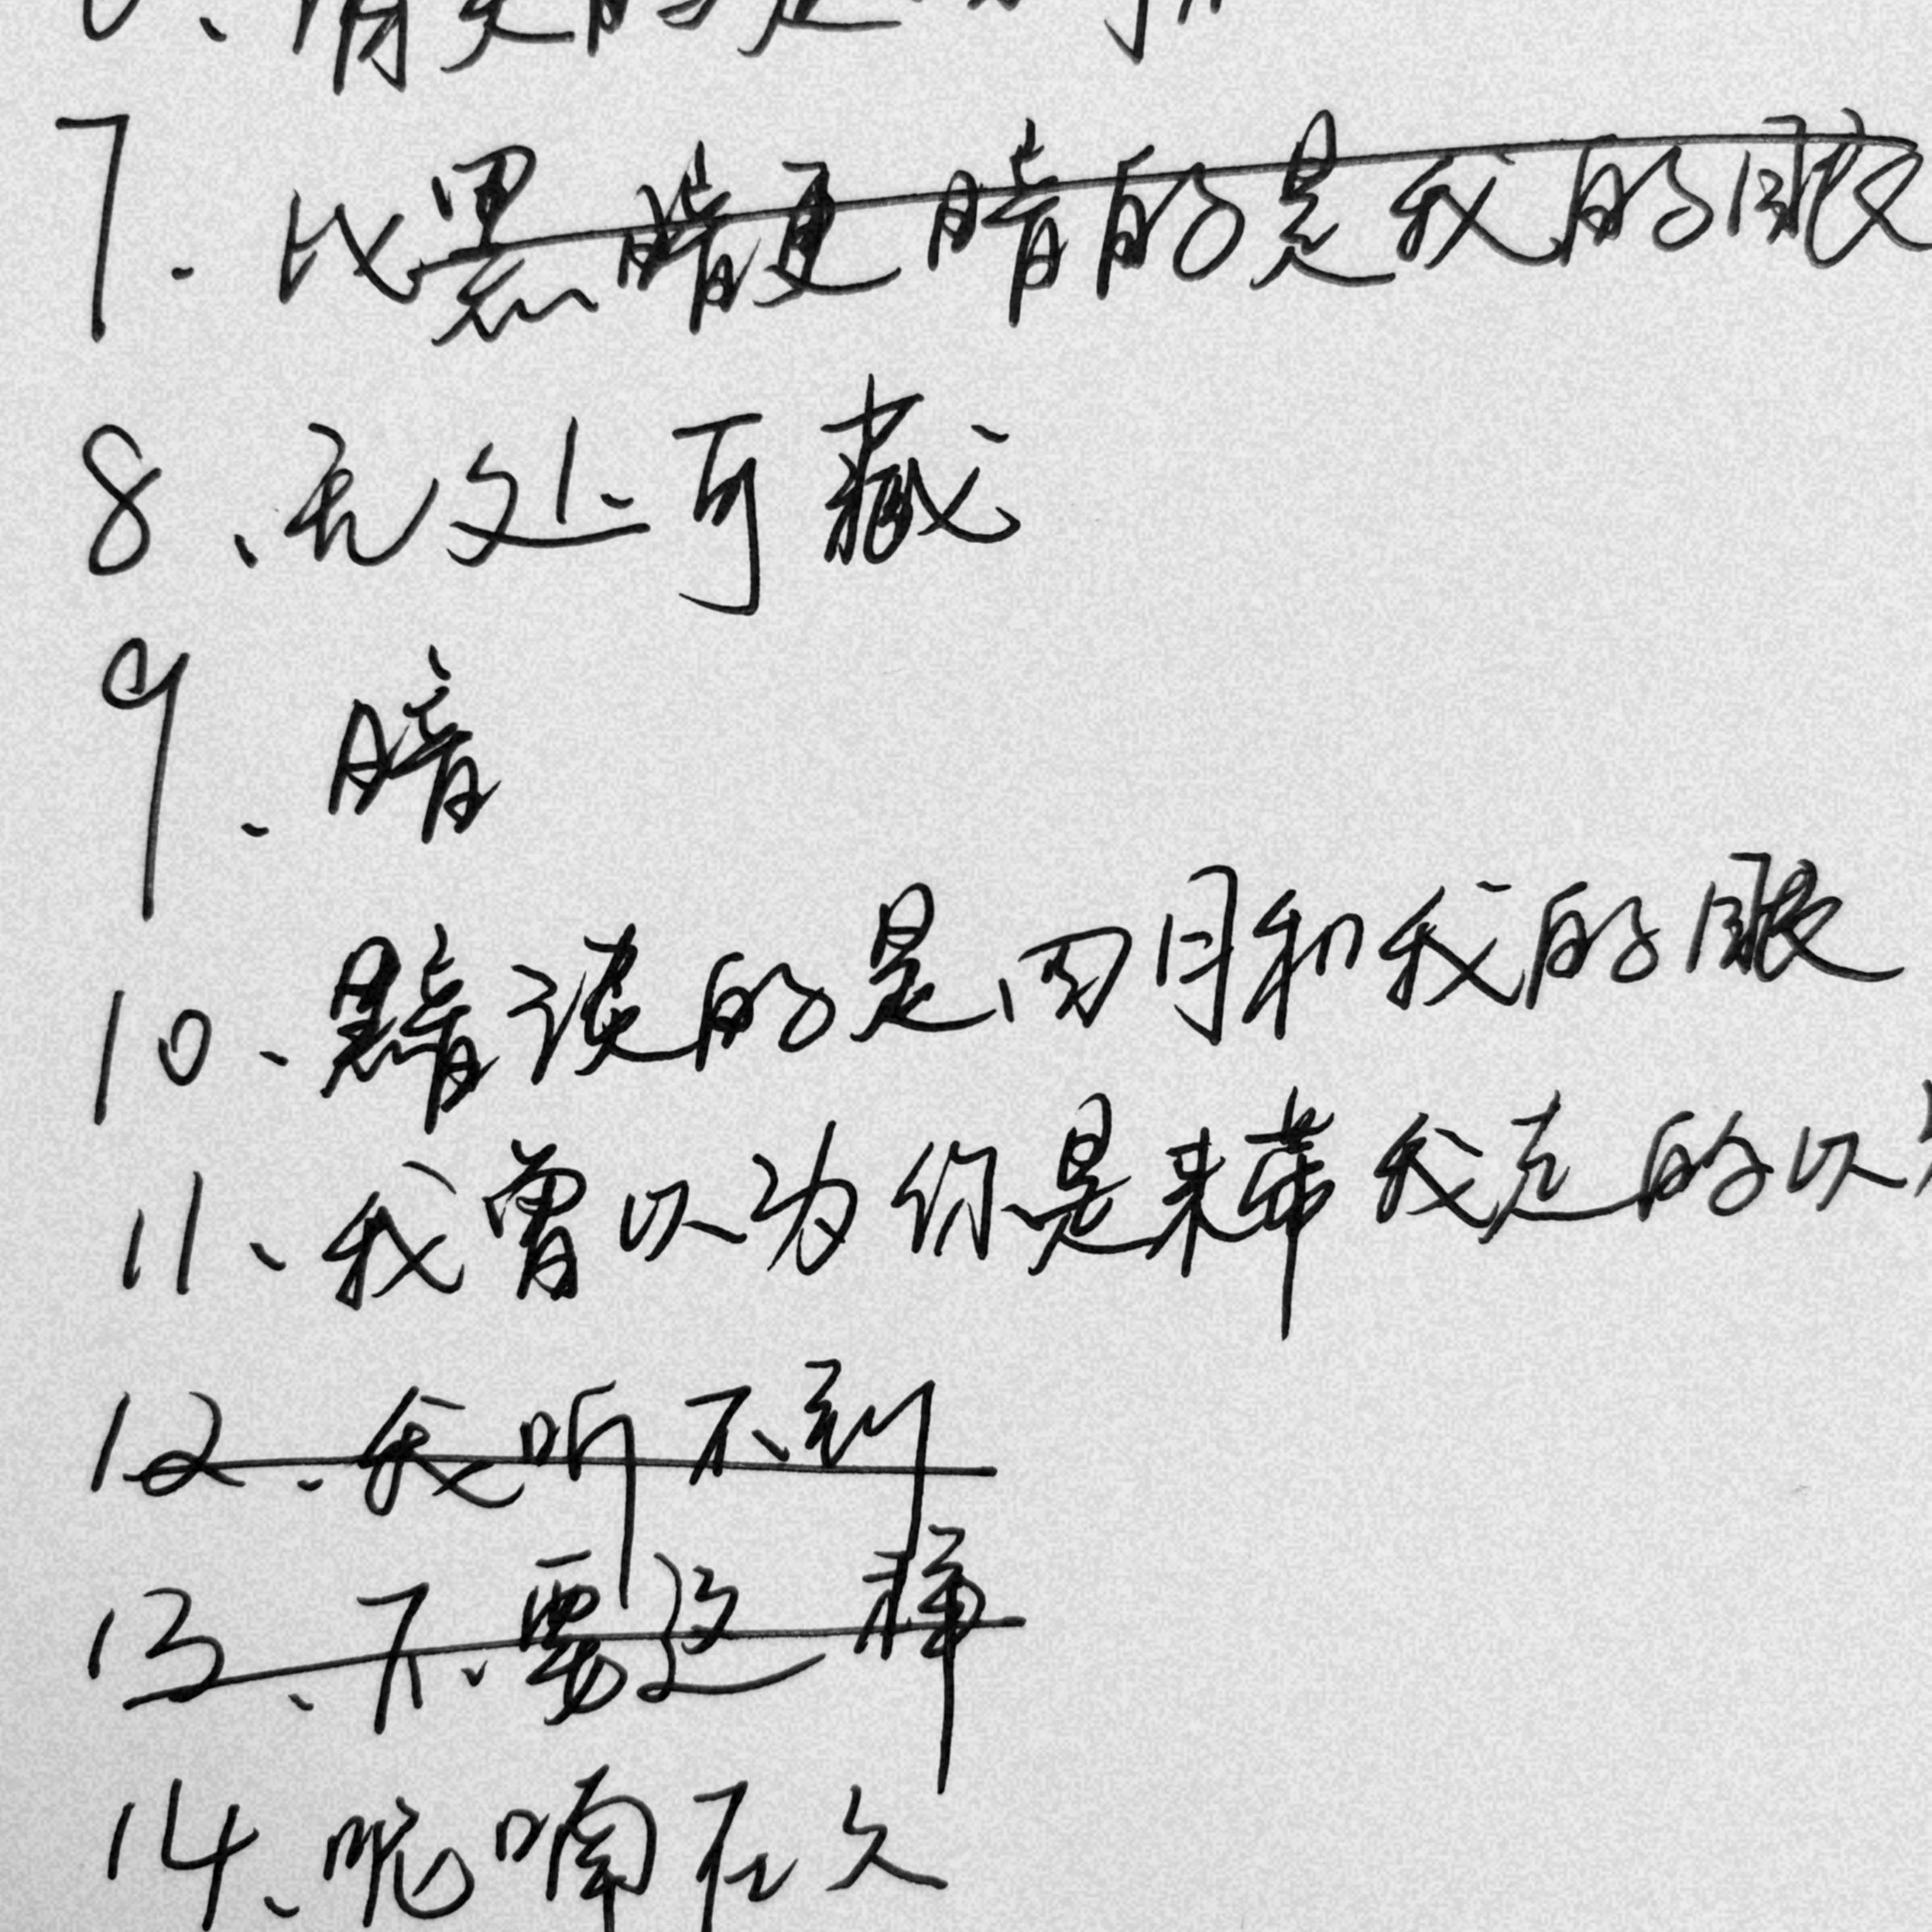 7. 比黑暗更暗的是我的眼
8、无处可藏
9、暗
10、黯淡的是四月和我的眼
11、我曾以为你是来带我走的以
12、我听不到
13、不要这样
14、呢喃在久